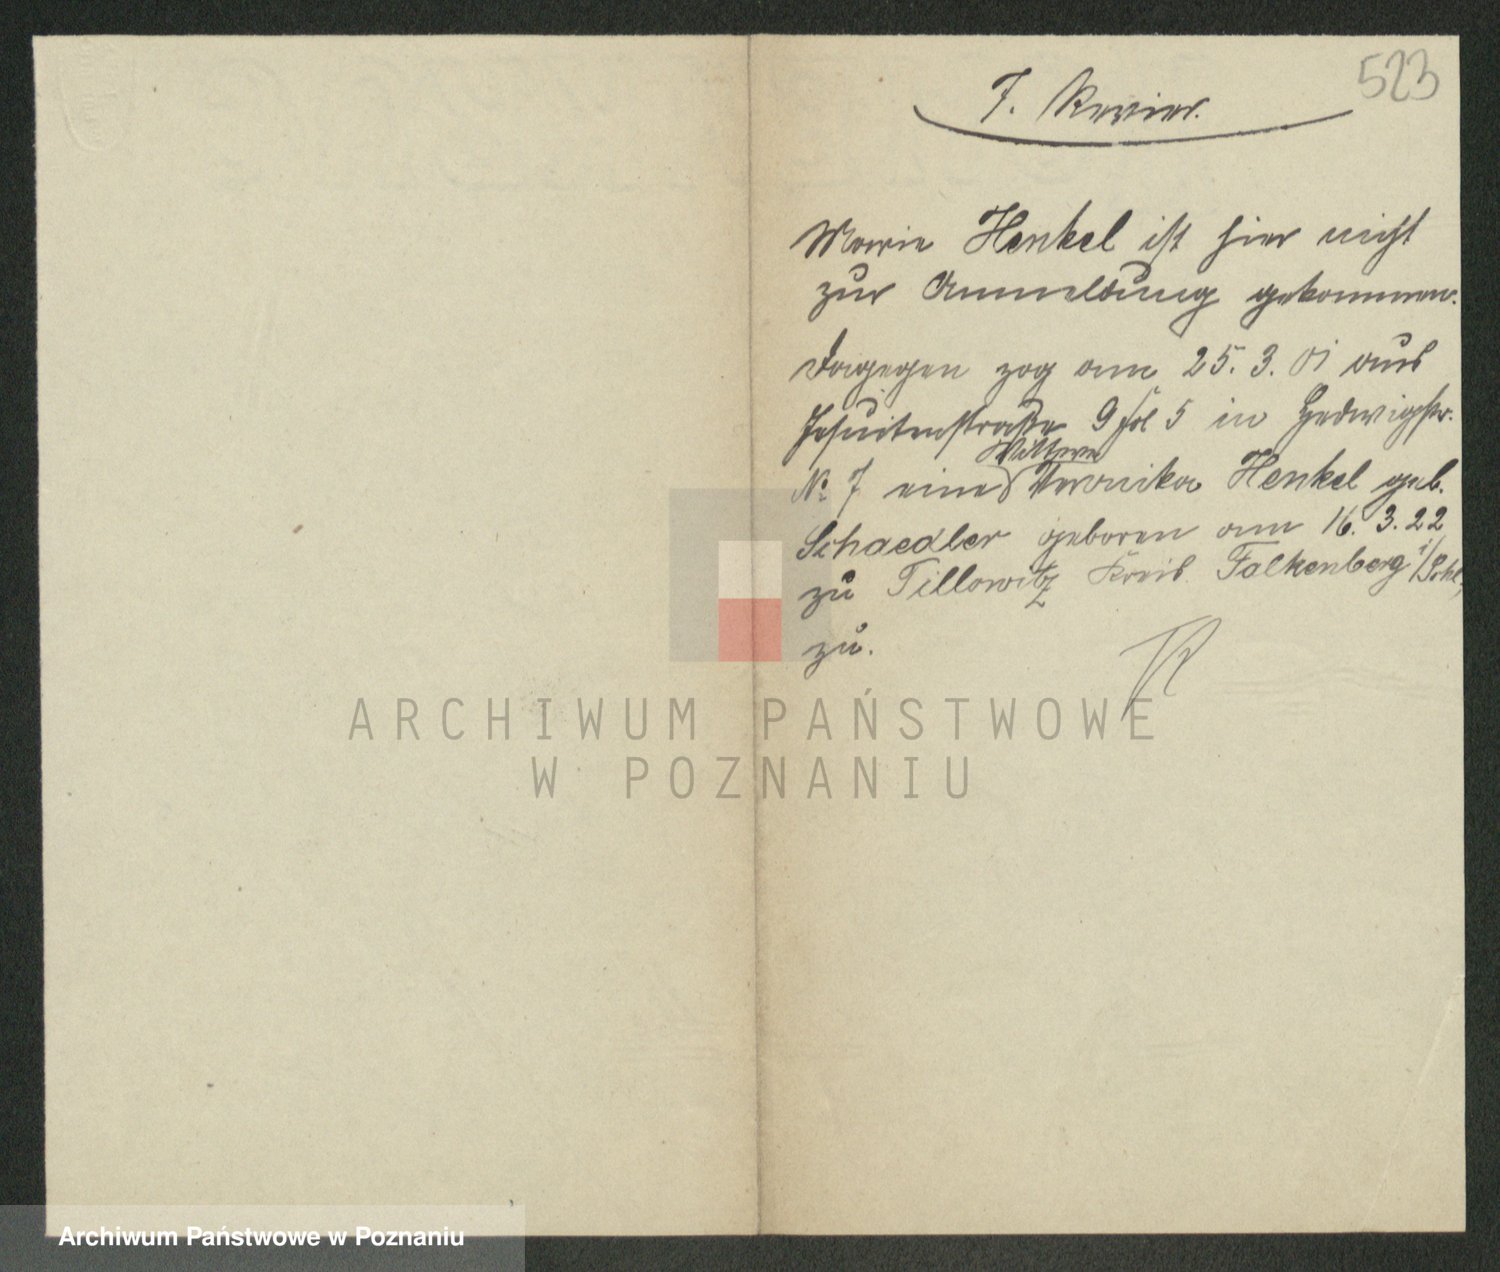 523
7. Revier.
Marie Henkel ist hier nicht
zur Anmeldung gekommen.
Dagegen zog am 25. 3. 01 aus
Jesuitenstraße 9 Fol 5 in Hedwigstr.
Wittwe
No 7 eine Veronika Henkel geb.
Schaedler geboren am 16. 3. 22
zu Tillowitz Kreis Falkenberg i/Schl,
zu.
ARCHIWUM PAŃSTWOWE
W POZNANIU
Archiwum Państwowe w Poznaniu